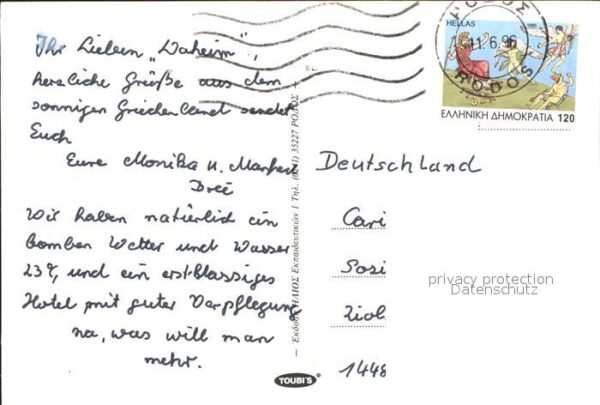 Ihr Lieben "Daheim",
herzliche Grüße aus dem
sonnigen Griechenland sendet
Euch
Eure Monika u. Manfred
Dreé
Wir haben natürlich ein
bomben Wetter und Wasser
23°, und ein erstklassiges
Hotel mit guter Verpflegung
na, was will man
mehr.
— Έκδοση ΗΛΙΟΣ Εκπαιδευτικών 1 Τηλ. (0241) 35227 ΡΟΔΟΣ —
TOUBI'S
ΡΟΔΟΣ
11.6.96
RODOS
HELLAS
ΕΛΛΗΝΙΚΗ ΔΗΜΟΚΡΑΤΙΑ 120
Deutschland
Cari
Sosi
Ziol
1448
privacy protection
Datenschutz